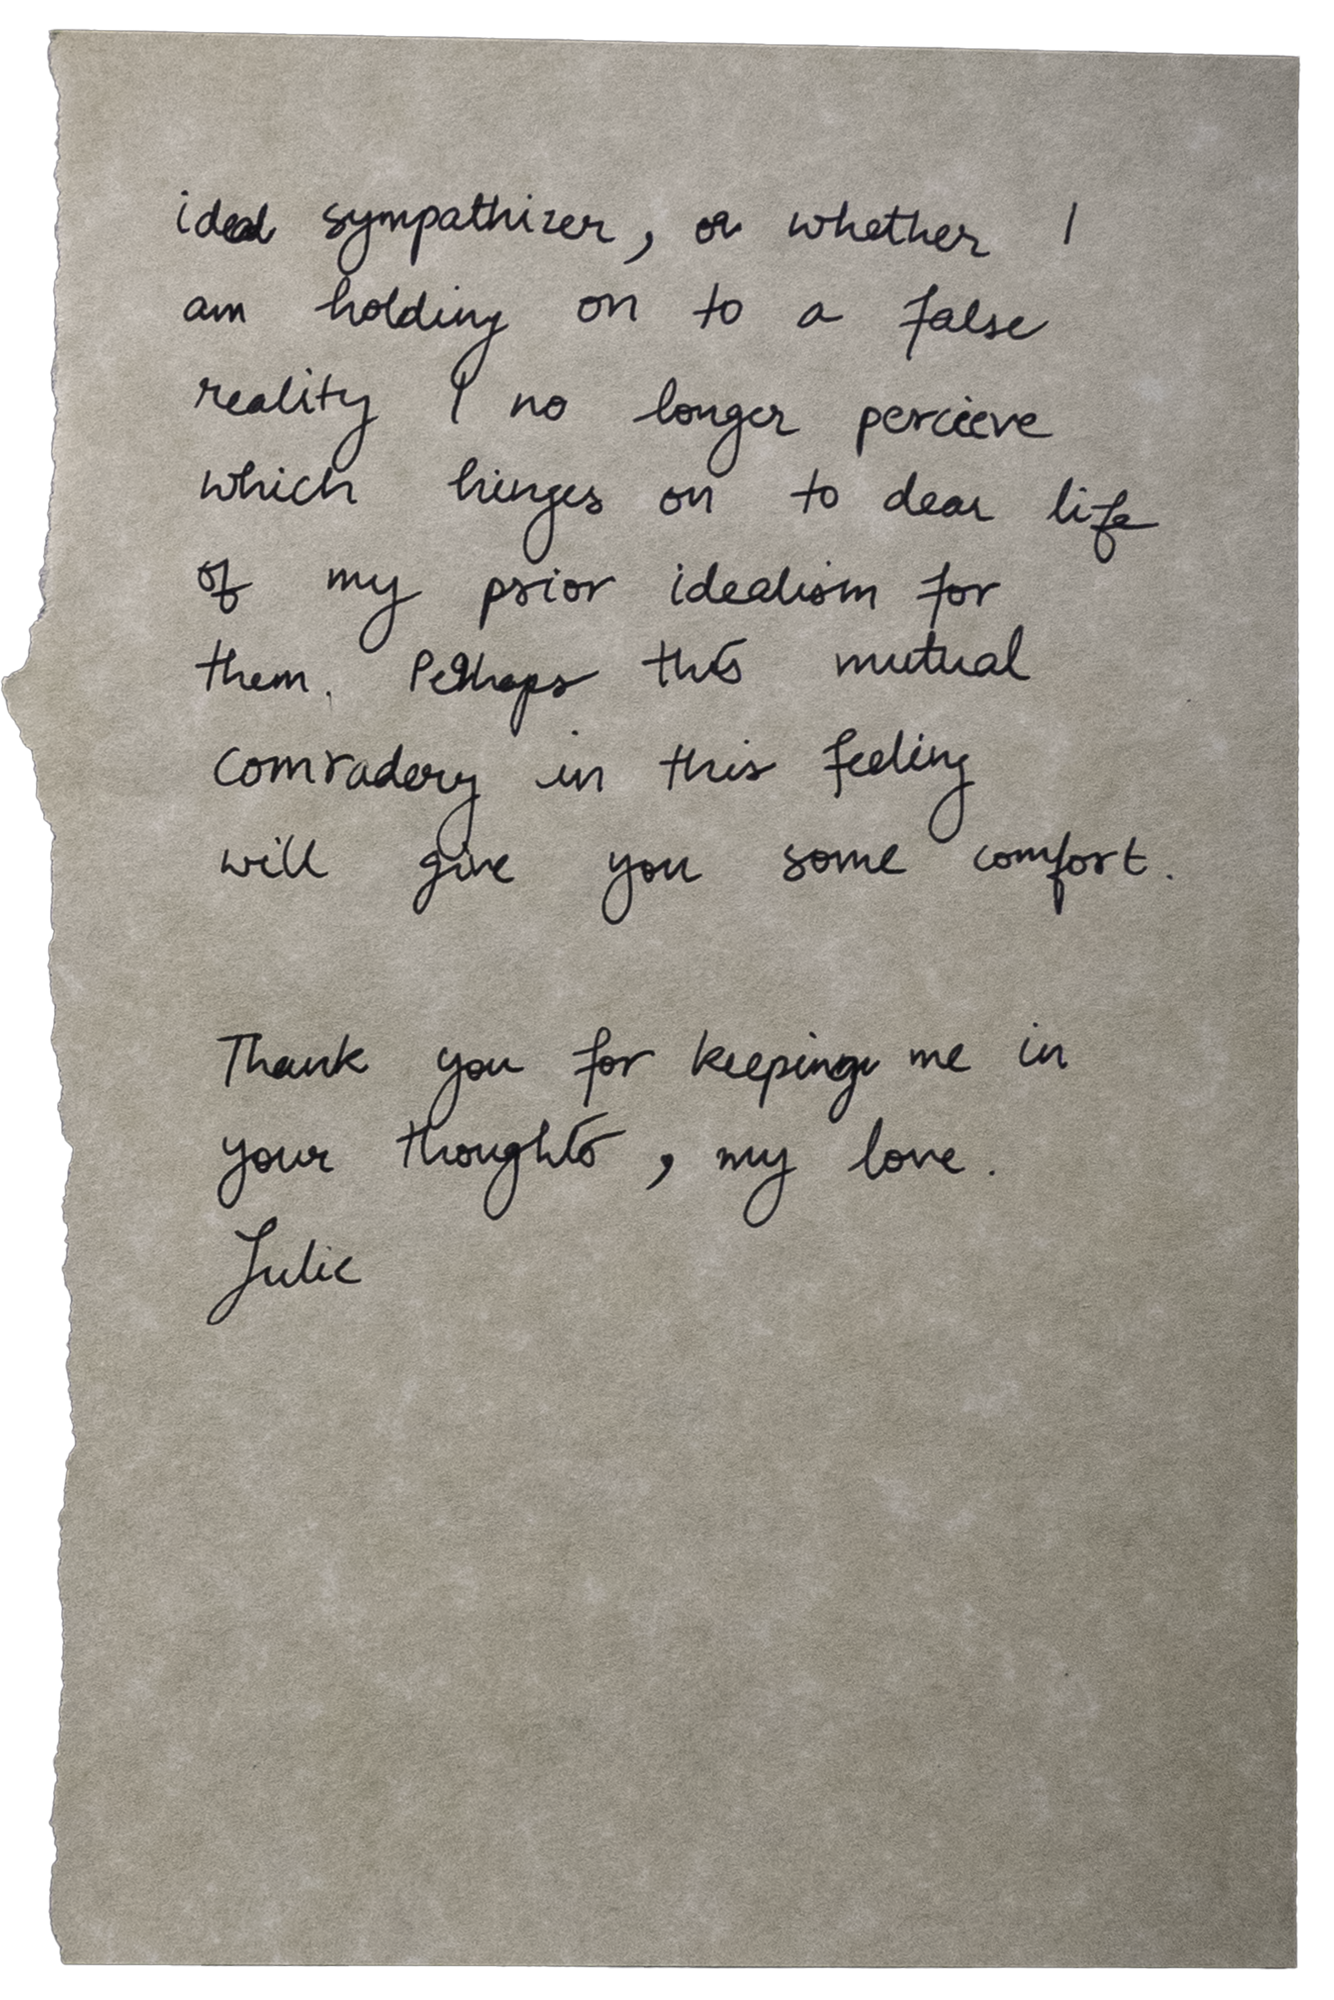 ideal sympathizer, or whether I
am holding on to a false
reality I no longer percieve
which hinges on to dear life
of my prior idealism for
them. Perhaps this mutual
comradery in this feeling
will give you some comfort.
Thank you for keeping me in
your thoughts, my love.
Julie